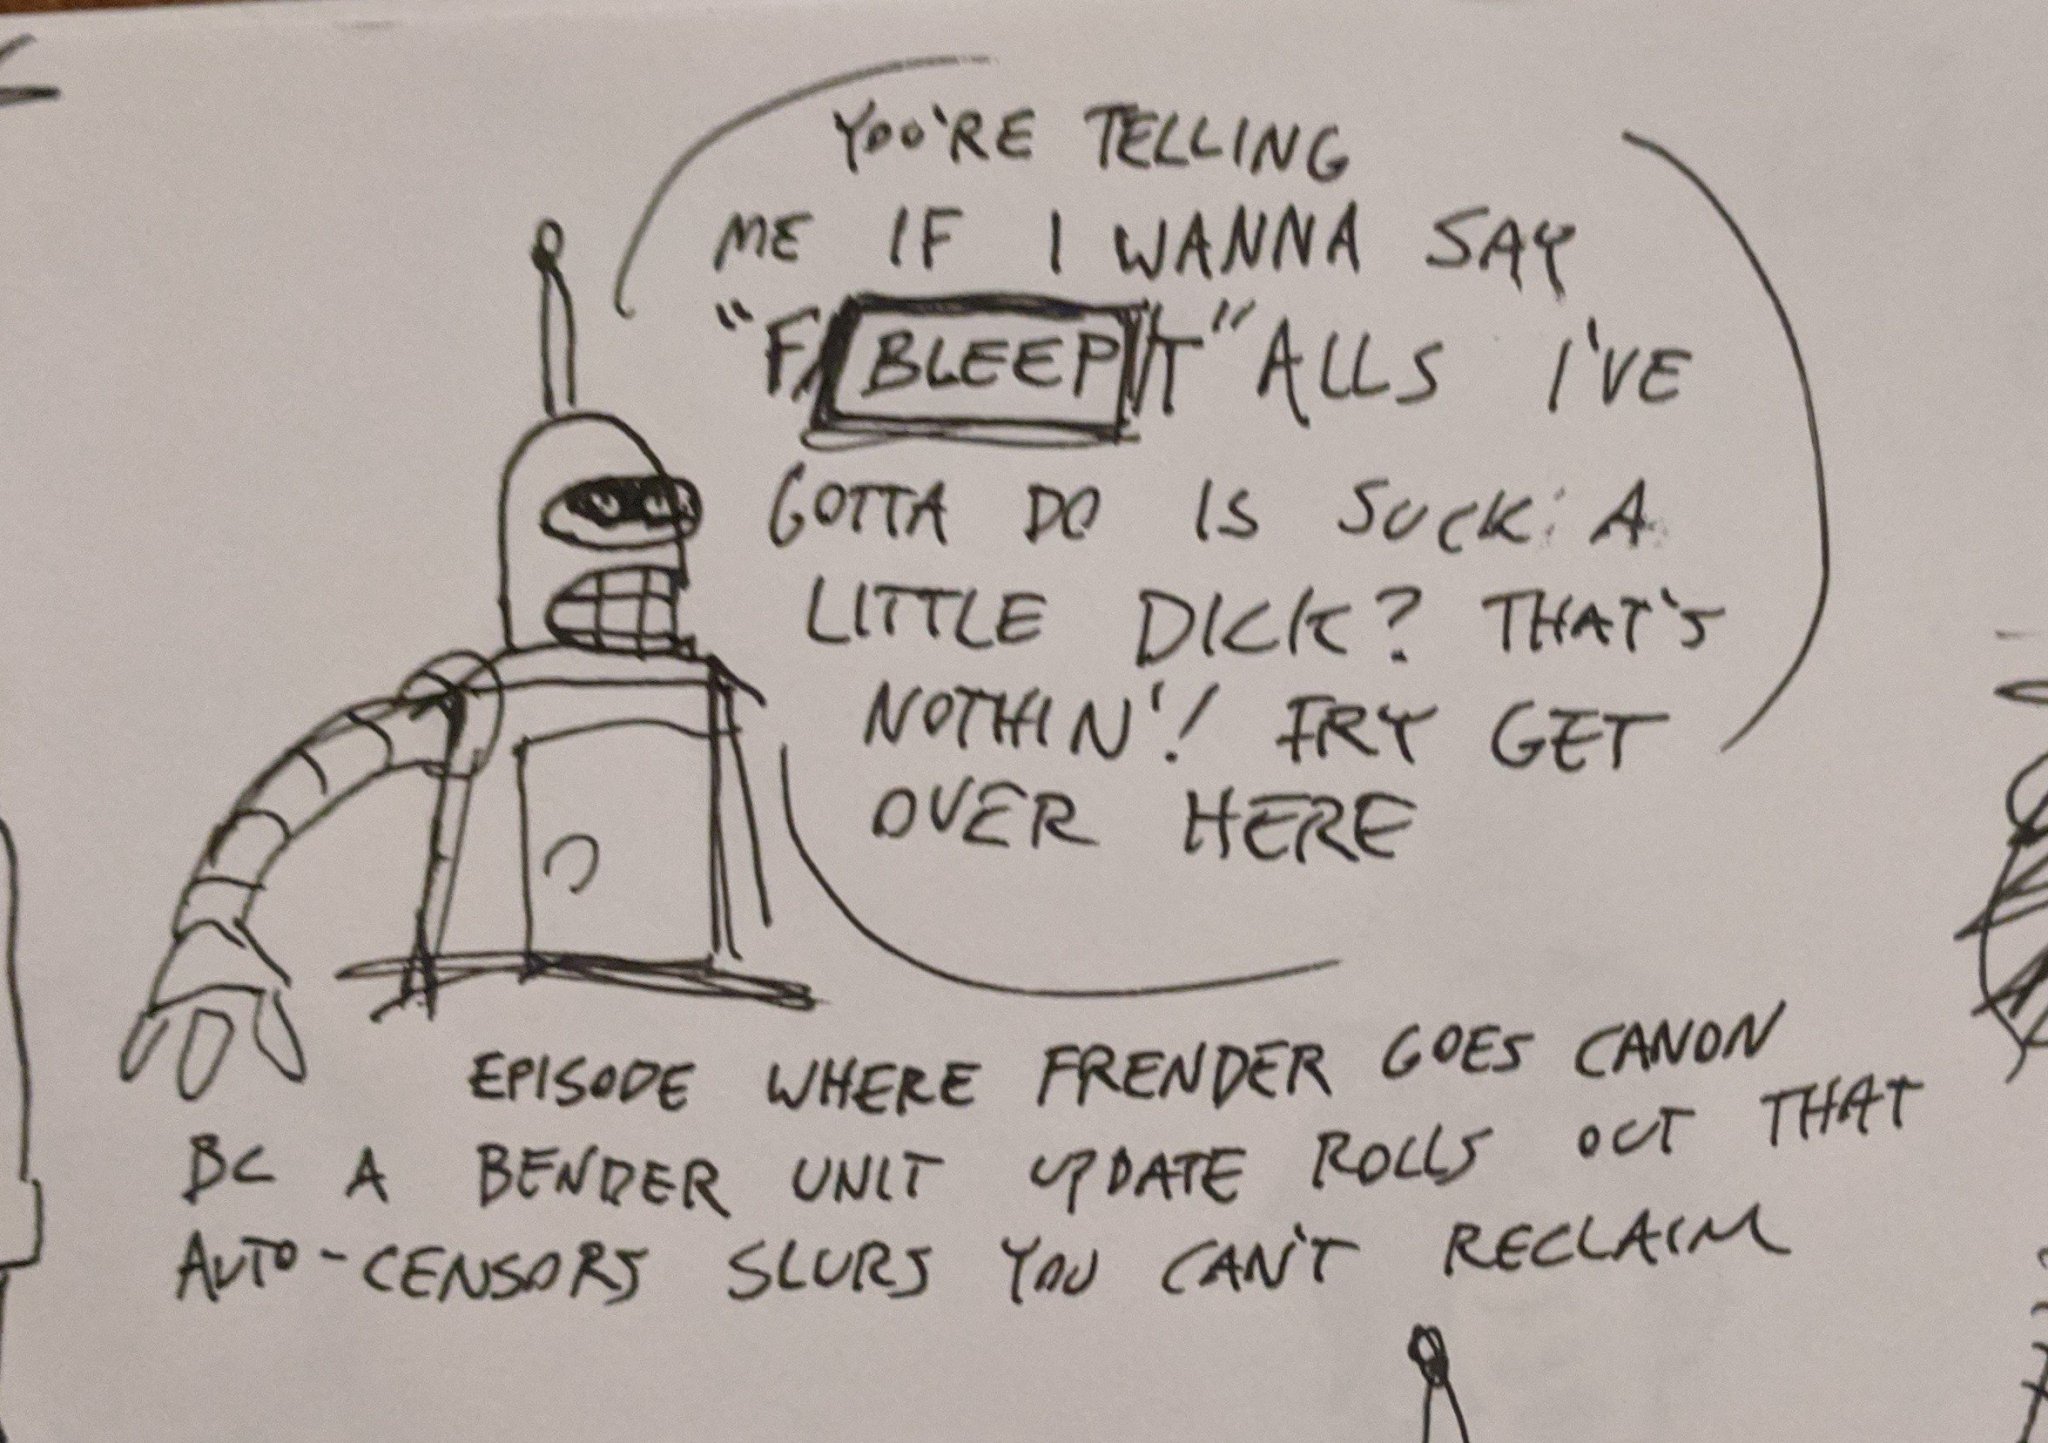 YOU'RE TELLING
ME IF I WANNA SAY
"FA BLEEP T" ALLS I'VE
GOTTA DO IS SUCK A
LITTLE DICK? THAT'S
NOTHIN'! FRY GET
OVER HERE
EPISODE WHERE FRENDER GOES CANON
BC A BENDER UNIT UPDATE ROLLS OUT THAT
AUTO-CENSORS SLURS YOU CAN'T RECLAIM